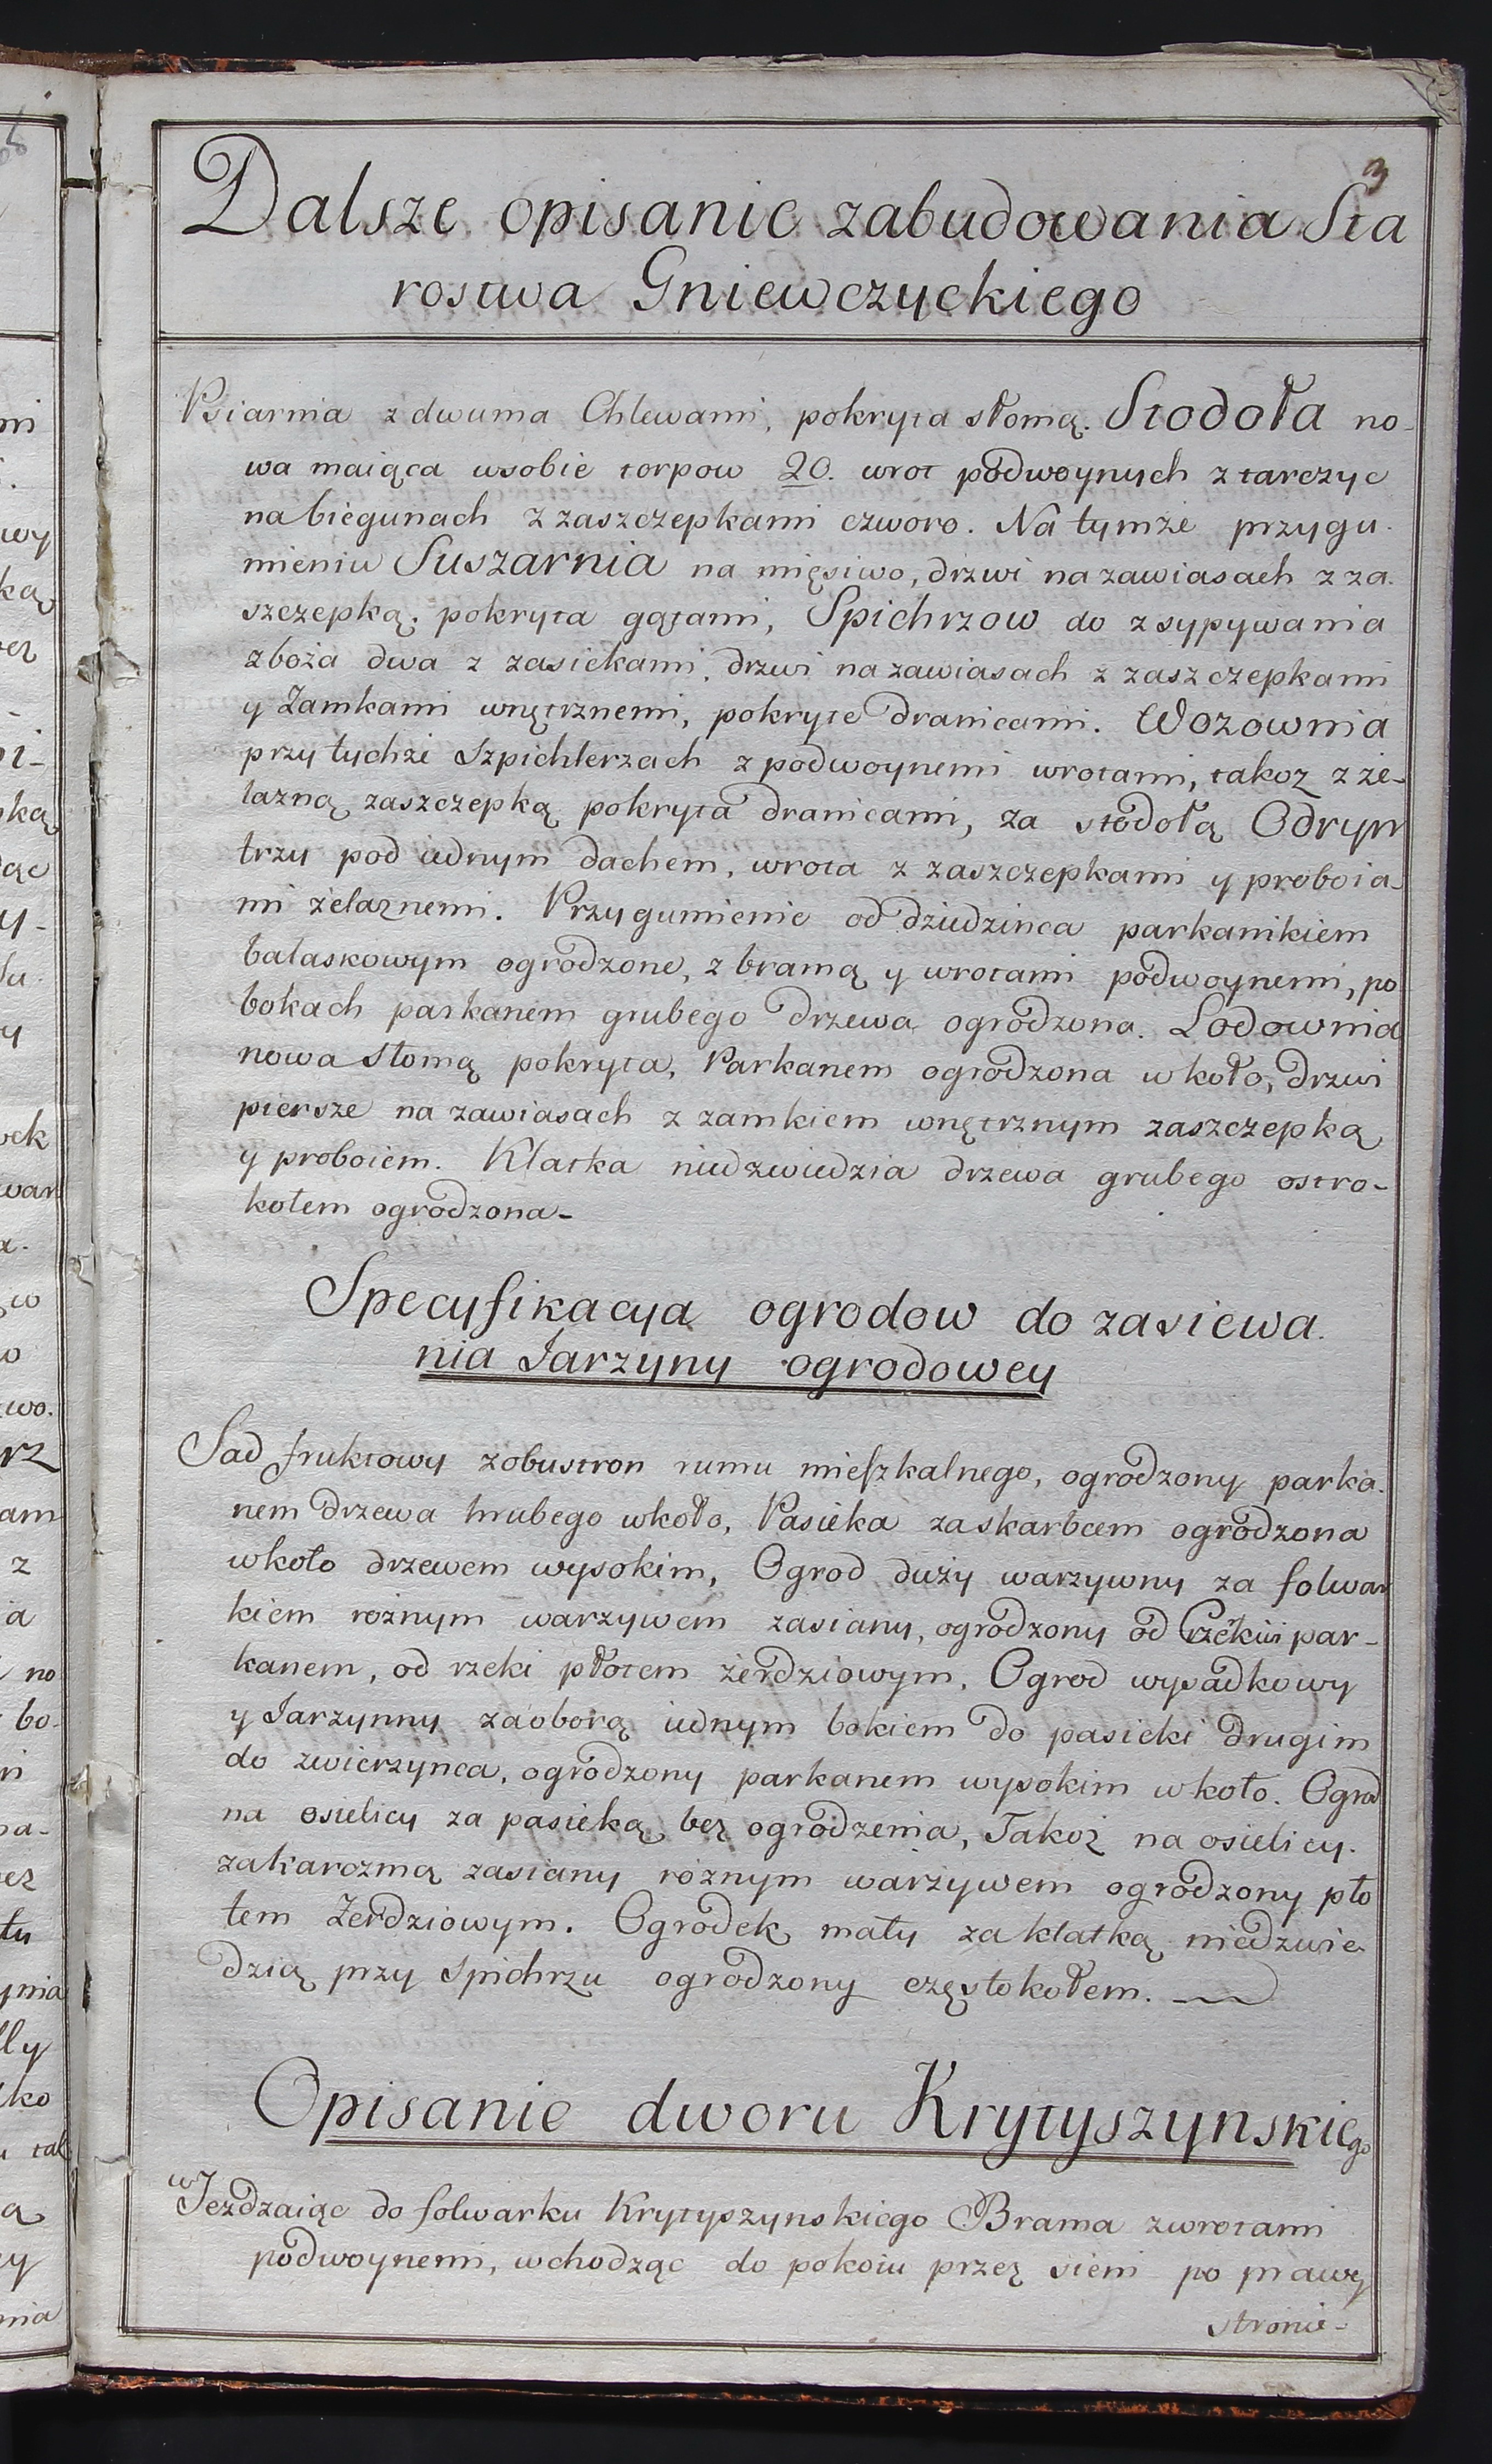 3
Dalsze opisanie zabudowania Sta
rostwa Gniewczyckiego
Psiarnia z dwuma Chlewami, pokryta słomą. Stodoła no-
wa maiąca wsobie torpow 20. wrot podwoynych z tarczyc
na biegunach z zaszczepkami czworo. Na tymże przygu-
mieniu Suszarnia na mięsiwo, drzwi na zawiasach z za-
szczepką, pokryta gątami, Spichrzow do zsypywania
zboża dwa z zasiekami, drzwi na zawiasach z zaszczepkami
y Zamkami wnętrznemi, pokryte dranicami. Wozownia
przy tychże Szpichlerzach z podwoynemi wrotami, takoz z że-
lazną zaszczepką pokryta dranicami, za stodołą Odryn
trzy pod iednym dachem, wrota z zaszczepkami y proboia-
mi żelaznemi. Przygumienie od dziedzinca parkanikiem
balaskowym ogrodzone, z bramą y wrotami podwoynemi, po
bokach parkanem grubego drzewa ogrodzona. Lodownia
nowa słomą pokryta, Parkanem ogrodzona wkoło, drzwi
piersze na zawiasach z zamkiem wnętrznym zaszczepką
y proboiem. Klatka niedzwiedzia drzewa grubego ostro-
kołem ogrodzona-
Specyfikacya ogrodow do zasiewa-
nia Jarzyny ogrodowey
Sad fruktowy zobustron rumu mieszkalnego, ogrodzony parka-
nem drzewa hrubego wkoło, Pasieka zaskarbcem ogrodzona
wkoło drzewem wysokim, Ogrod duży warzywny za folwar
kiem rożnym warzywem zasiany, ogrodzony od par-
kanem, od rzeki płotem żerdziowym, Ogrod wysadkowy
y Jarzynny zaoborą iednym bokiem do pasieki drugim
do zwierzynca, ogrodzony parkanem wysokim wkoło. Ogrod
na osielicy za pasieką bez ogrodzenia, Takoż na osielicy
zakarczmą zasiany rożnym warzywem ogrodzony pło
tem Żerdziowym. Ogrodek mały za klatką niedzwie
dzią przy Spichrzu ogrodzony częstokołem.
Opisanie dworu Krytyszynskiego
wJezdzaiąc do folwarku Krytyszynskiego Brama zwrotami
podwoynemi, wchodząc do pokoiu przez sieni po prawey
stronie-